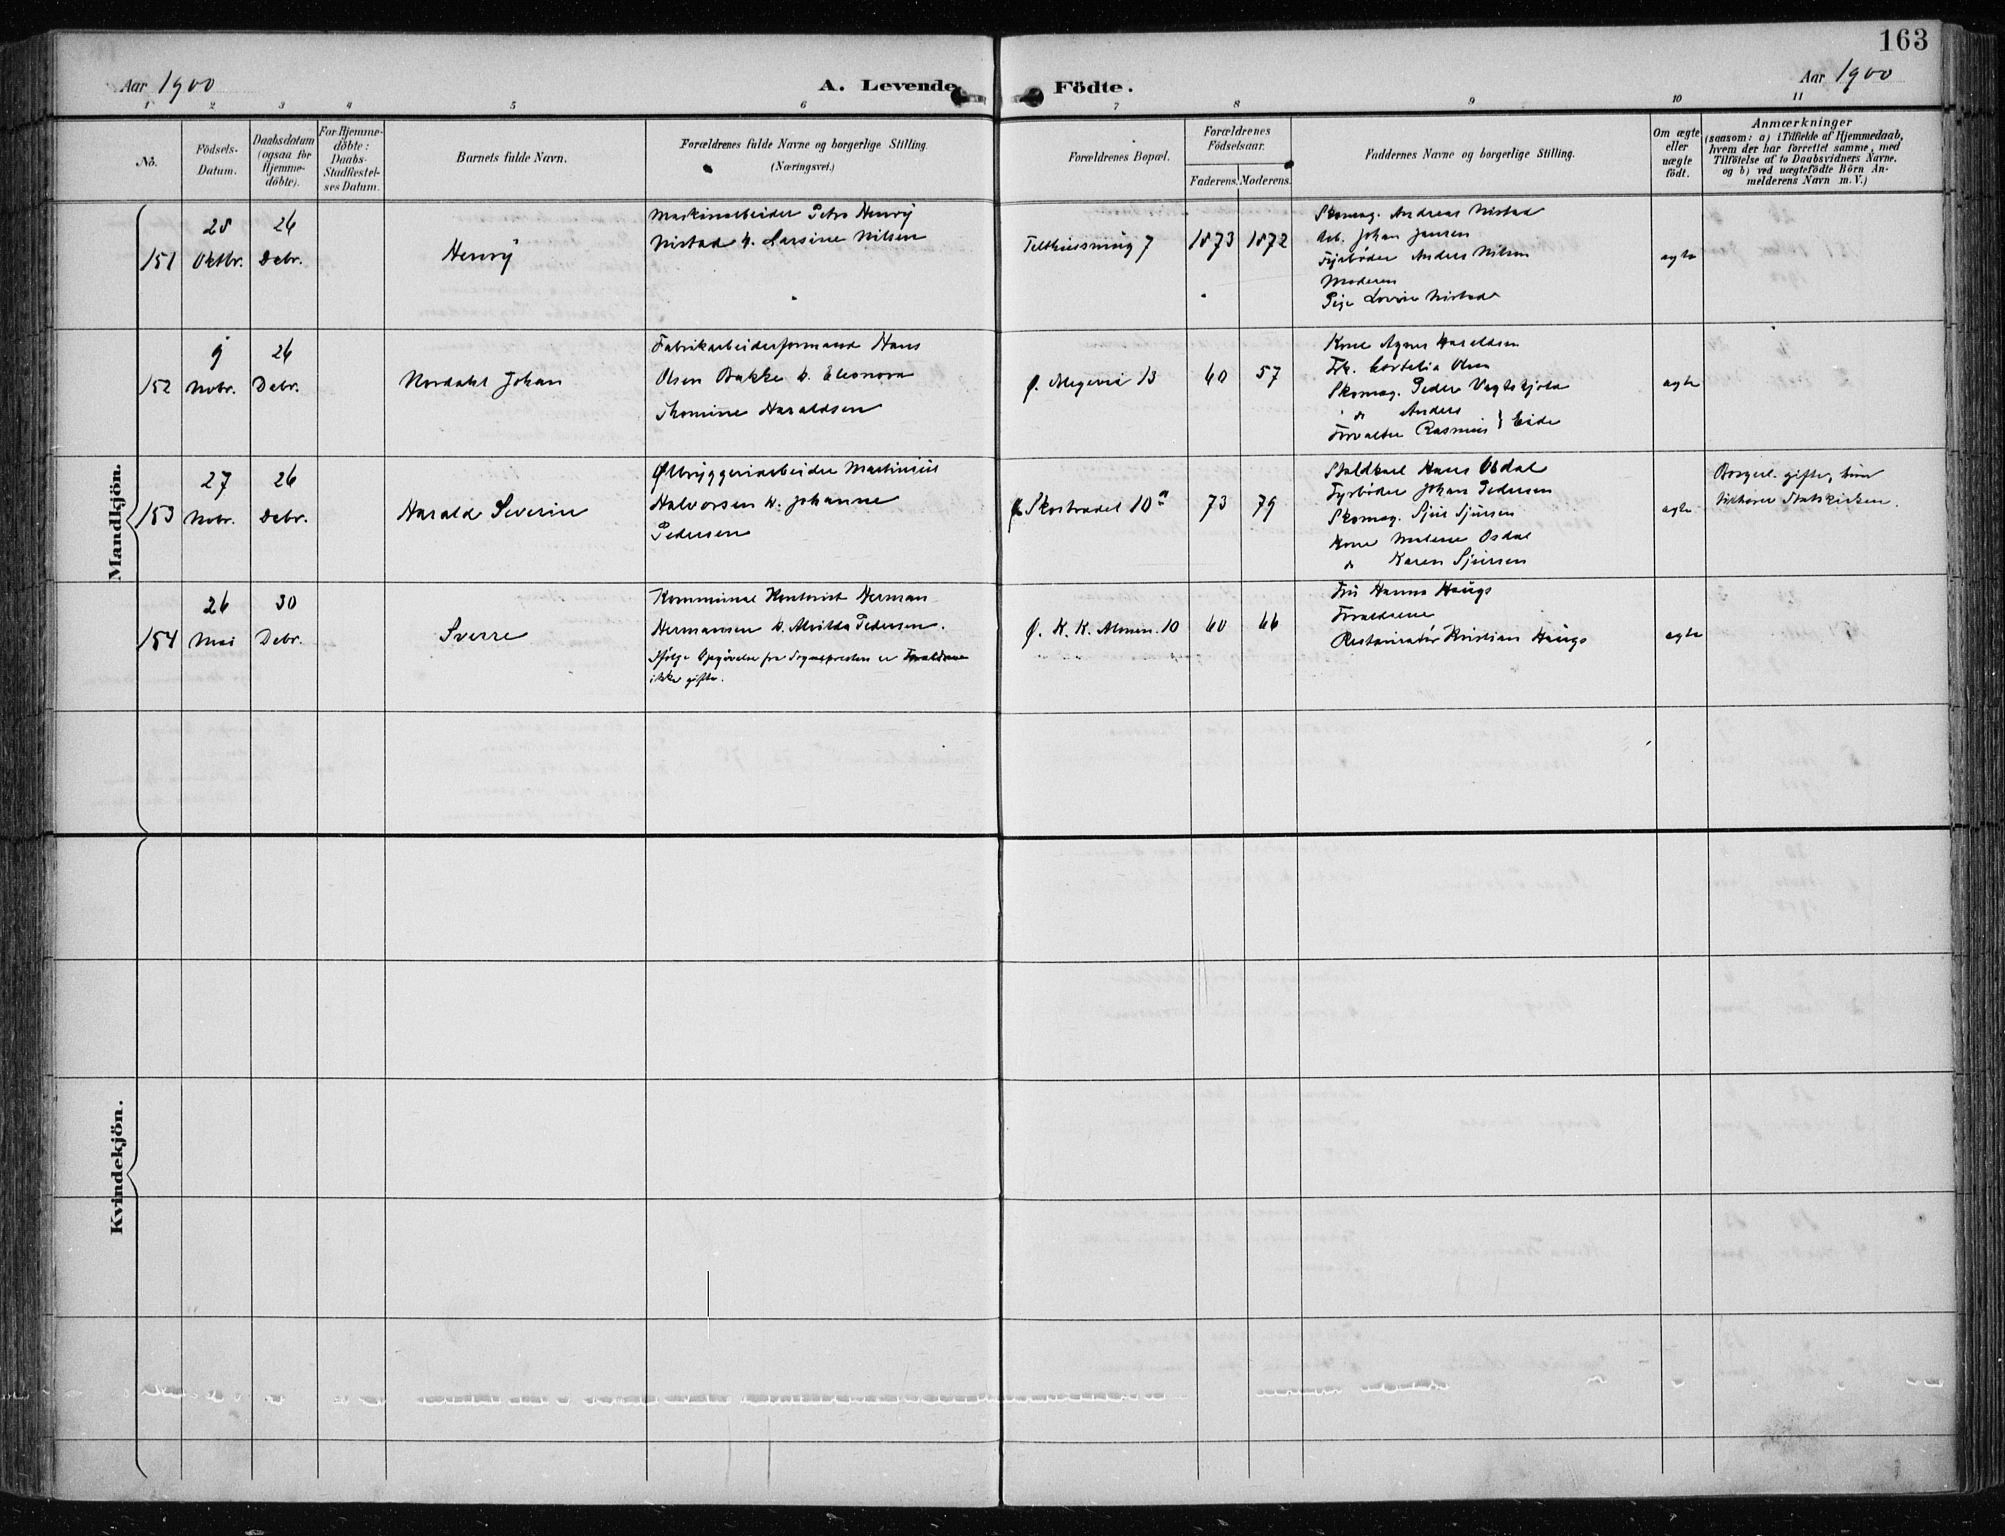 163
Aar 1900
A. Levende Födte.
Aar 1900
1 2 3 4 5 6 7 8 9 10 11
No.
Födsels-Datum.
Daabsdatum (ogsaa for Hjemme-döbte).
For Hjemme-döbte: Daabs-Stadfæstel-ses Datum.
Barnets fulde Navn.
Forældrenes fulde Navne og borgerlige Stilling.
(Næringsvei.)
Forældrenes Bopæl.
Forældrenes Födselsaar.
Faderens. Moderens.
Faddernes Navne og borgerlige Stilling.
Om ægte eller uægte födt.
Anmærkninger
(saasom: a) i Tilfælde af Hjemmedaab,
hvem der har forrettet samme, med
Tilföielse af to Daabsvidners Navne.
og b) ved uægtefödte Börn An-
melderens Navn m. V.)
Mandkjön.
151
28 Oktbr.
26 Debr.
Henry
Maskinarbeider Petro Henry
Nistad h. Larsine Nilsen
Telthussmug 7
1873
1872
Skomag. Andreas Nistad
Arb. Johan Jansen
Fyrbøder Anders Nilsen
Moderen
Pige Lovise Nistad
ægte
152
9 Novbr.
26 Debr.
Nordahl Johan
Fabrikarbeiderformand Hans
Olsen Bakke h. Eleonora
Thomine Haraldsen
Ø. Møgevei 13
60
57
Kone Agnes Haraldsen
Frk. Cortelia Olsen
Skomag. Peder Vagtskjold
do Anders
Forvalter Rasmus } Eide
ægte
153
27 Novbr.
26 Debr.
Harald Severin
Ølbryggeriarbeider Martinius
Halvorsen h. Johanne
Pedersen
Ø. Skostrædet 10a
73
79
Staldkarl Hans Osdal
Fyrbøder Johan Pedersen
Skomag. Sjur Sjursen
Kone Malene Osdal
do Karen Sjursen
ægte
Borgerl. gifte, hun
tilhører Statskirken.
154
26 Mai
30 Debr.
Sverre
Kommunal Kontorist Herman
Hermansen h. Alvilda Pedersen.
Ifølge Opgivelse fra Sogneprestens er Forældrene
ikke gifte.
Ø. K. K. Almen. 10
60
66
Fru Hanna Haugs
Forældrene
Restauratør Kristian Haugs
ægte
Kvindekjön.